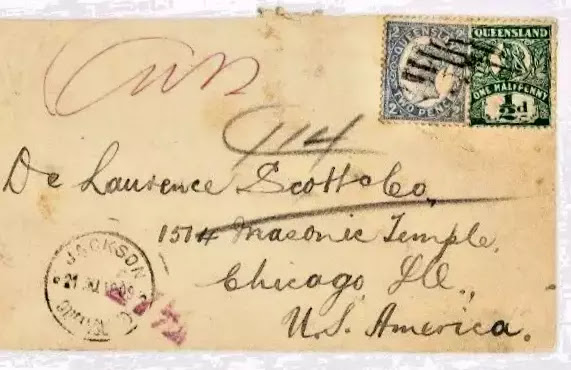 QUEENSLAND
TWO PENCE
QUEENSLAND
ONE HALFPENNY
½d
114
De Laurence Scott & Co,
1514 Masonic Temple,
Chicago Ill.,
U.S. America.
JACKSON